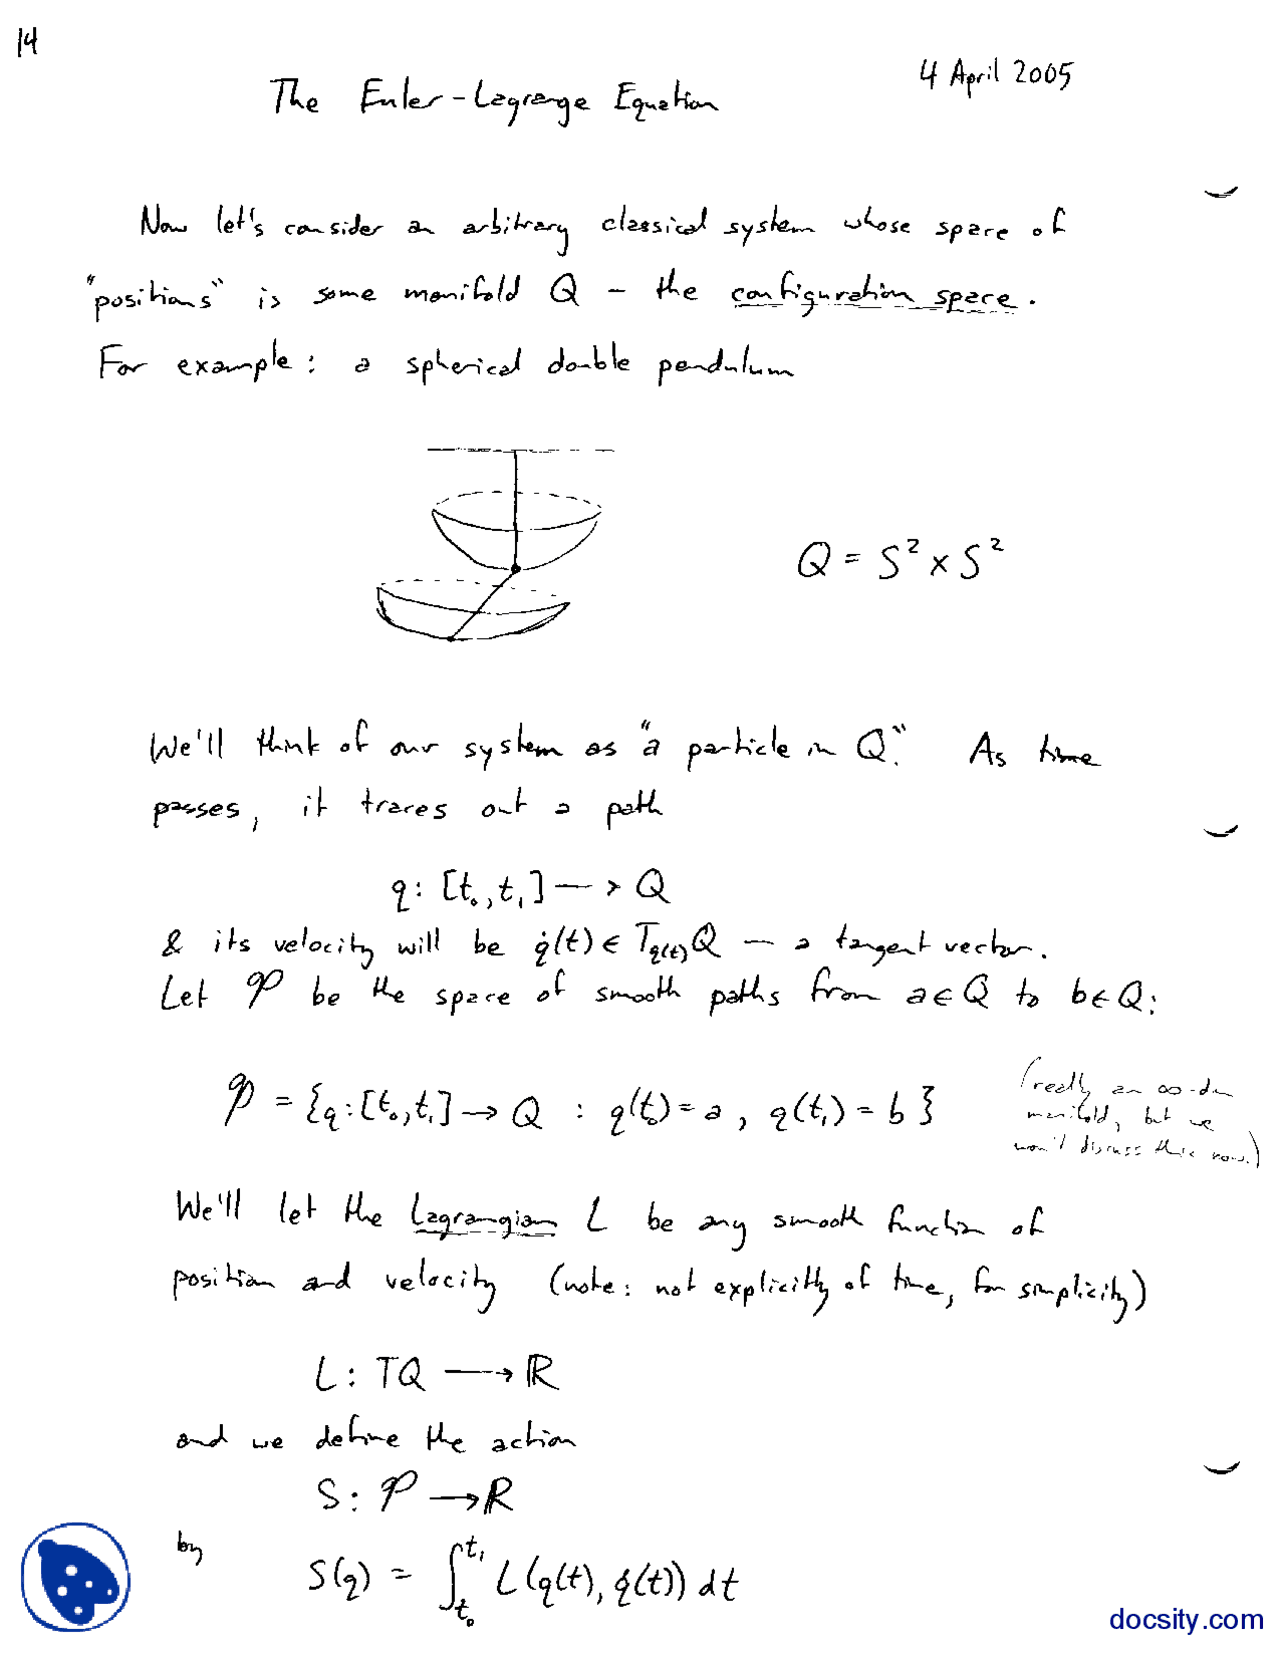 14
4 April 2005
The Euler-Lagrange Equation
Now let's consider an arbitrary classical system whose space of
"positions" is some manifold Q – the configuration space.
For example: a spherical double pendulum
Q = S² × S²
We'll think of our system as "a particle in Q." As time
passes, it traces out a path
q: [t₀, t₁] → Q
& its velocity will be q̇(t) ∈ T_q(t)Q — a tangent vector.
Let 𝒫 be the space of smooth paths from a ∈ Q to b ∈ Q:
𝒫 = {q: [t₀, t₁] → Q : q(t₀) = a, q(t₁) = b}
(really an ∞-dim
manifold, but we
won't discuss this now.)
We'll let the Lagrangian L be any smooth function of
position and velocity (note: not explicitly of time, for simplicity)
L: TQ → ℝ
and we define the action
S: 𝒫 → ℝ
by
S(q) = ∫_t₀^t₁ L(q(t), q̇(t)) dt
docsity.com